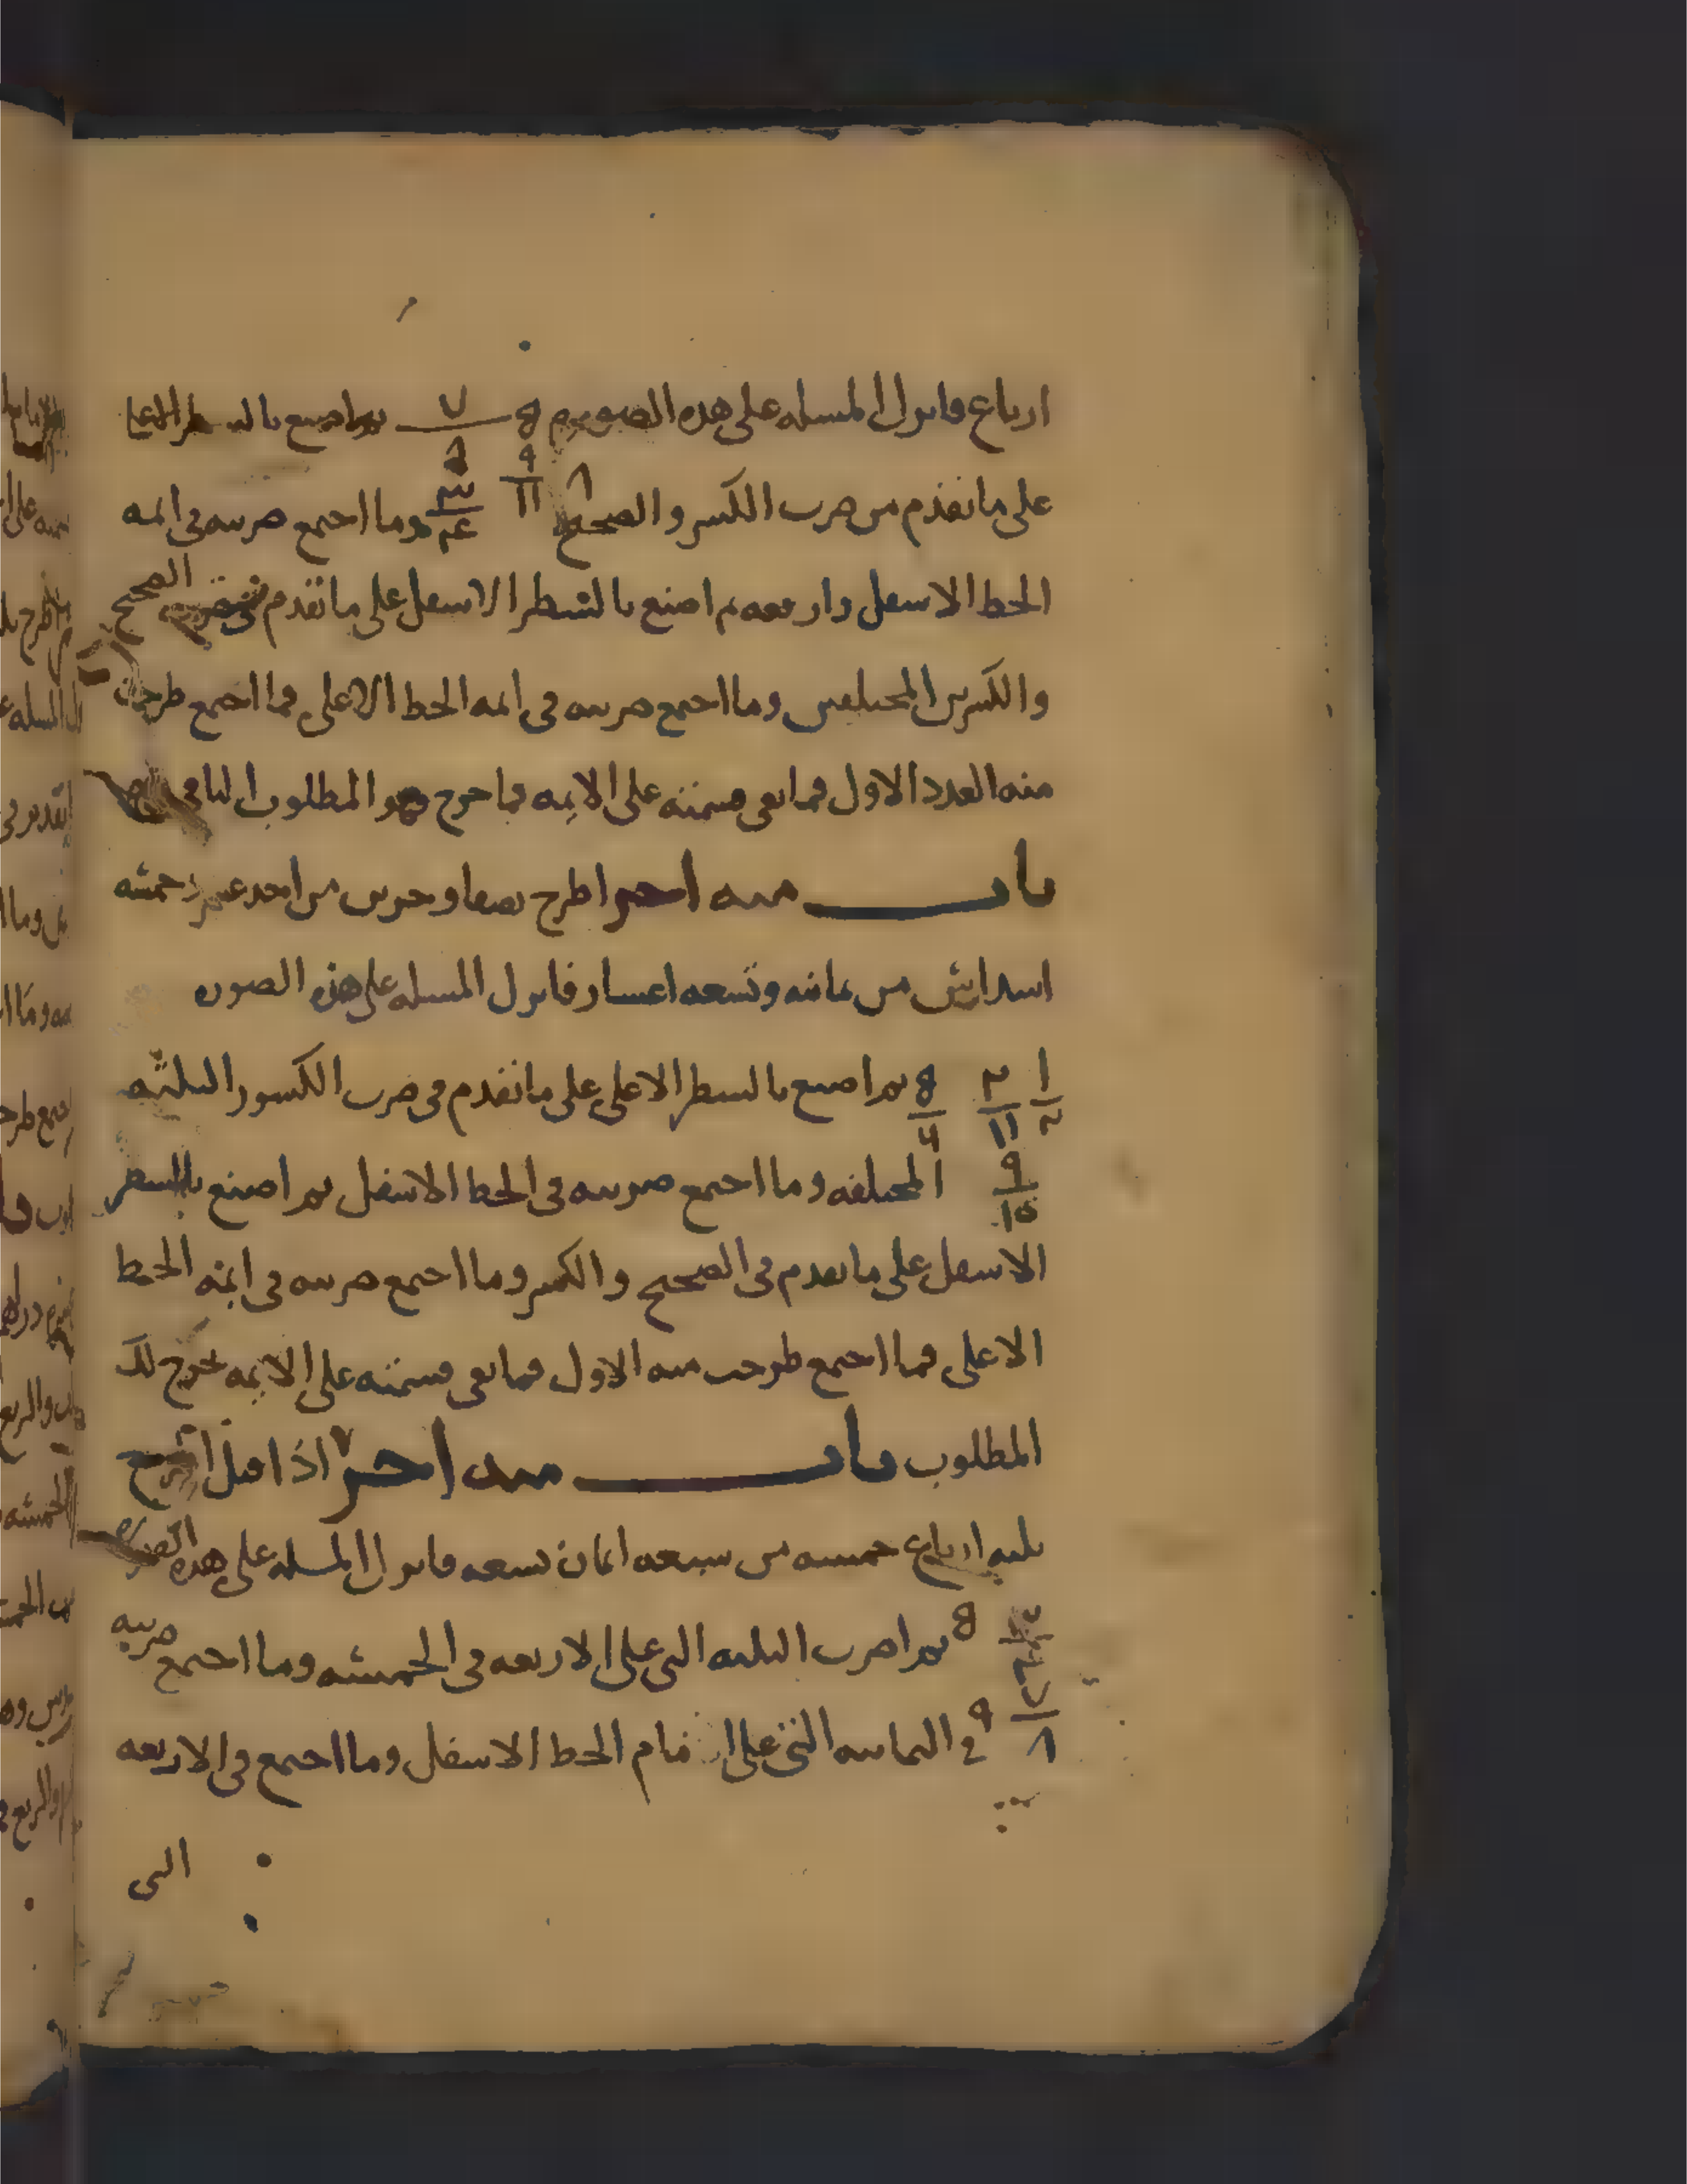 ارباع فانزل المسله على هذه الصوره ٥ ٧/٨ ثم اصنع بالسطر الاعلا
على ما تقدم من ضرب الكسر والصحيح ٨ ٩/١١ ٣/٤ وما اجتمع ضربته في ائمه
الخط الاسفل وارفعه ثم اصنع بالشطر الاسفل على ما تقدم الصحيح
والكسرين المختلفين وما اجتمع ضربته في ائمه الخط الاعلى فما اجتمع طرحت
منه العدد الاول فما بقى قسمته على الايمه فما خرج فهو المطلوب الباقي
باب منه اخر اطرح نصفا وجزين من احد عشر وخمسه
اسداس من ثمانيه وتسعه اعشار فانزل المسله على هذه الصوره
١/٢ ٢/١١ ٥/٦ ثم اصنع بالسطر الاعلى على ما تقدم في ضرب الكسور الثلثه
٩/١٠ المختلفه وما اجتمع ضربته في الخط الاسفل ثم اصنع بالسطر
الاسفل على ما تقدم في الصحيح والكسر وما اجتمع ضربته في ايمه الخط
الاعلى فما اجتمع طرحت منه الاول فما بقى قسمته على الايمه يخرج لك
المطلوب باب منه اخر اذا قيل اطرح
ثلثه ارباع خمسه من سبعه اثمان تسعه فانزل المسله على هذه الصوره
٣/٤ ٥ ثم اضرب الثلثه التي على الاربعه في الخمسه وما اجتمع ضربته
٧/٨ ٩ في الثمانيه التي على امام الخط الاسفل وما اجتمع في الاربعه
التى